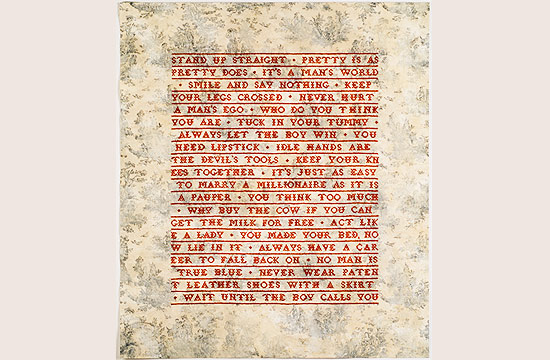 STAND UP STRAIGHT • PRETTY IS AS
PRETTY DOES • IT'S A MAN'S WORLD
• SMILE AND SAY NOTHING • KEEP
YOUR LEGS CROSSED • NEVER HURT
A MAN'S EGO • WHO DO YOU THINK
YOU ARE • TUCK IN YOUR TUMMY •
ALWAYS LET THE BOY WIN • YOU
NEED LIPSTICK • IDLE HANDS ARE
THE DEVIL'S TOOLS • KEEP YOUR KN
EES TOGETHER • IT'S JUST AS EASY
TO MARRY A MILLIONAIRE AS IT IS
A PAUPER • YOU THINK TOO MUCH
• WHY BUY THE COW IF YOU CAN
GET THE MILK FOR FREE • ACT LIK
E A LADY • YOU MADE YOUR BED, NO
W LIE IN IT • ALWAYS HAVE A CAR
EER TO FALL BACK ON • NO MAN IS
TRUE BLUE • NEVER WEAR PATEN
T LEATHER SHOES WITH A SKIRT
• WAIT UNTIL THE BOY CALLS YOU